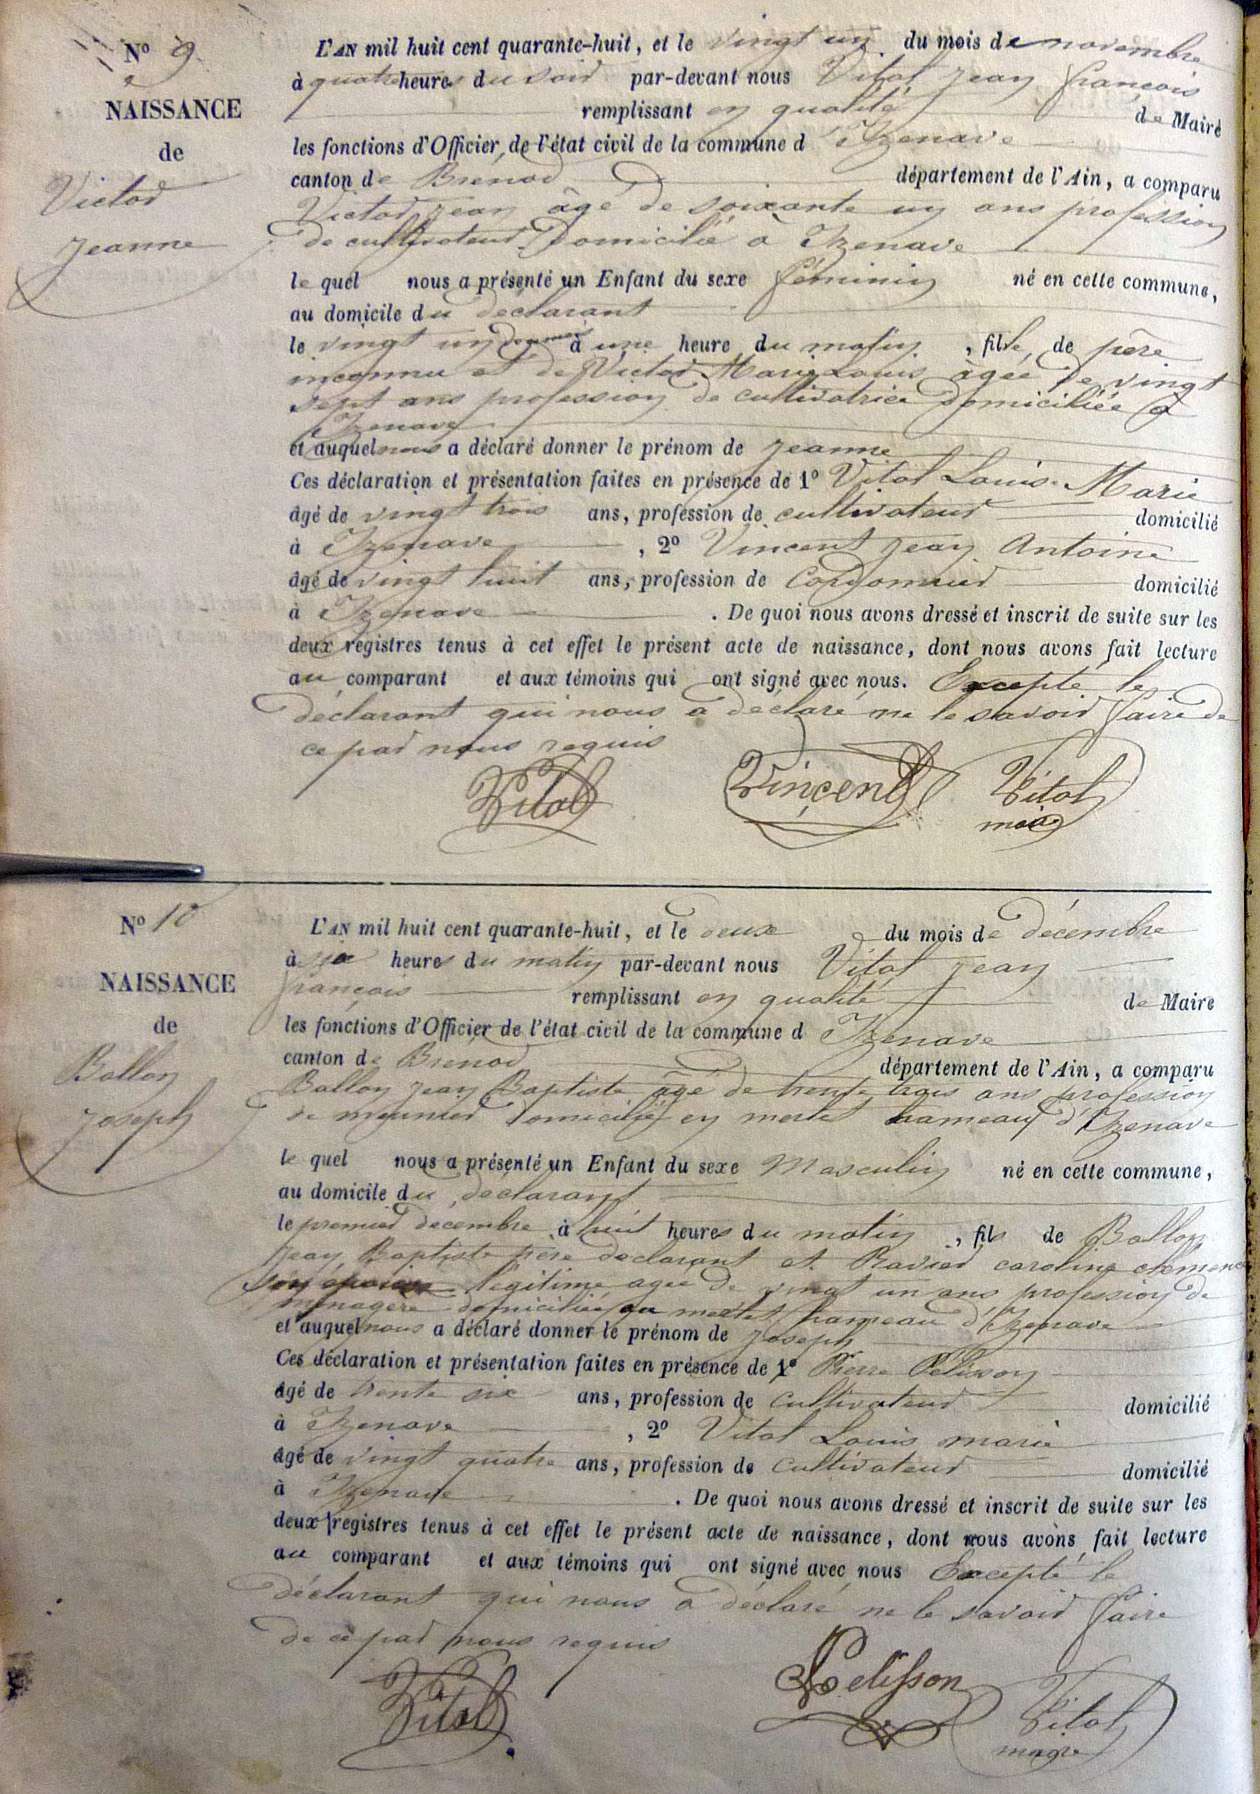 N° 9
NAISSANCE
de
Victor
Jeanne
L'AN mil huit cent quarante-huit, et le vingt un du mois de novembre
à quatre heures du soir par-devant nous Vital Jean françois
remplissant en qualité de Maire
les fonctions d'Officier de l'état civil de la commune d'Izenave
canton de Brenod département de l'Ain, a comparu
Victor Jean âgé de soixante un ans profession
de cultivateur Domicilié à Izenave
le quel nous a présenté un Enfant du sexe féminin né en cette commune,
au domicile du déclarant
le vingt un à une heure du matin, fille de père
inconnu et de Victor Marie Louis âgée de vingt
sept ans profession de cultivatrice domiciliée à
Izenave
et auquel nous a déclaré donner le prénom de Jeanne
Ces déclaration et présentation faites en présence de 1° Vital Louis Marie
âgé de vingt trois ans, profession de cultivateur domicilié
à Izenave, 2° Vincent Jean Antoine
âgé de vingt huit ans, profession de Cordonnier domicilié
à Izenave. De quoi nous avons dressé et inscrit de suite sur les
deux registres tenus à cet effet le présent acte de naissance, dont nous avons fait lecture
au comparant et aux témoins qui ont signé avec nous. Excepté le
déclarant qui nous a déclaré ne le savoir faire de
ce par nous requis
Vital Vincent Vital
maire
N° 10
NAISSANCE
de
Ballon
Joseph
L'AN mil huit cent quarante-huit, et le deux du mois de décembre
à six heures du matin par-devant nous Vital Jean
françois remplissant en qualité de Maire
les fonctions d'Officier de l'état civil de la commune d Izenave
canton de Brenod département de l'Ain, a comparu
Ballon Jean Baptiste âgé de trente trois ans profession
de meunier Domicilié en mertet hameau d'Izenave
le quel nous a présenté un Enfant du sexe Masculin né en cette commune,
au domicile du déclarant
le premier décembre à huit heures du matin, fils de Ballon
Jean Baptiste père déclarant et Ravier caroline clemence
son épouse légitime agée de vingt un ans profession de
ménagère domiciliée au mertet hameau d'Izenave
et auquel nous a déclaré donner le prénom de Joseph
Ces déclaration et présentation faites en présence de 1° Pierre Pelisson
âgé de trente six ans, profession de cultivateur domicilié
à Izenave, 2° Vital Louis marie
âgé de vingt quatre ans, profession de cultivateur domicilié
à Izenave. De quoi nous avons dressé et inscrit de suite sur les
deux registres tenus à cet effet le présent acte de naissance, dont nous avons fait lecture
au comparant et aux témoins qui ont signé avec nous Excepté le
déclarant qui nous a déclaré ne le savoir faire
de ce par nous requis
Vital Pelisson Vital
maire